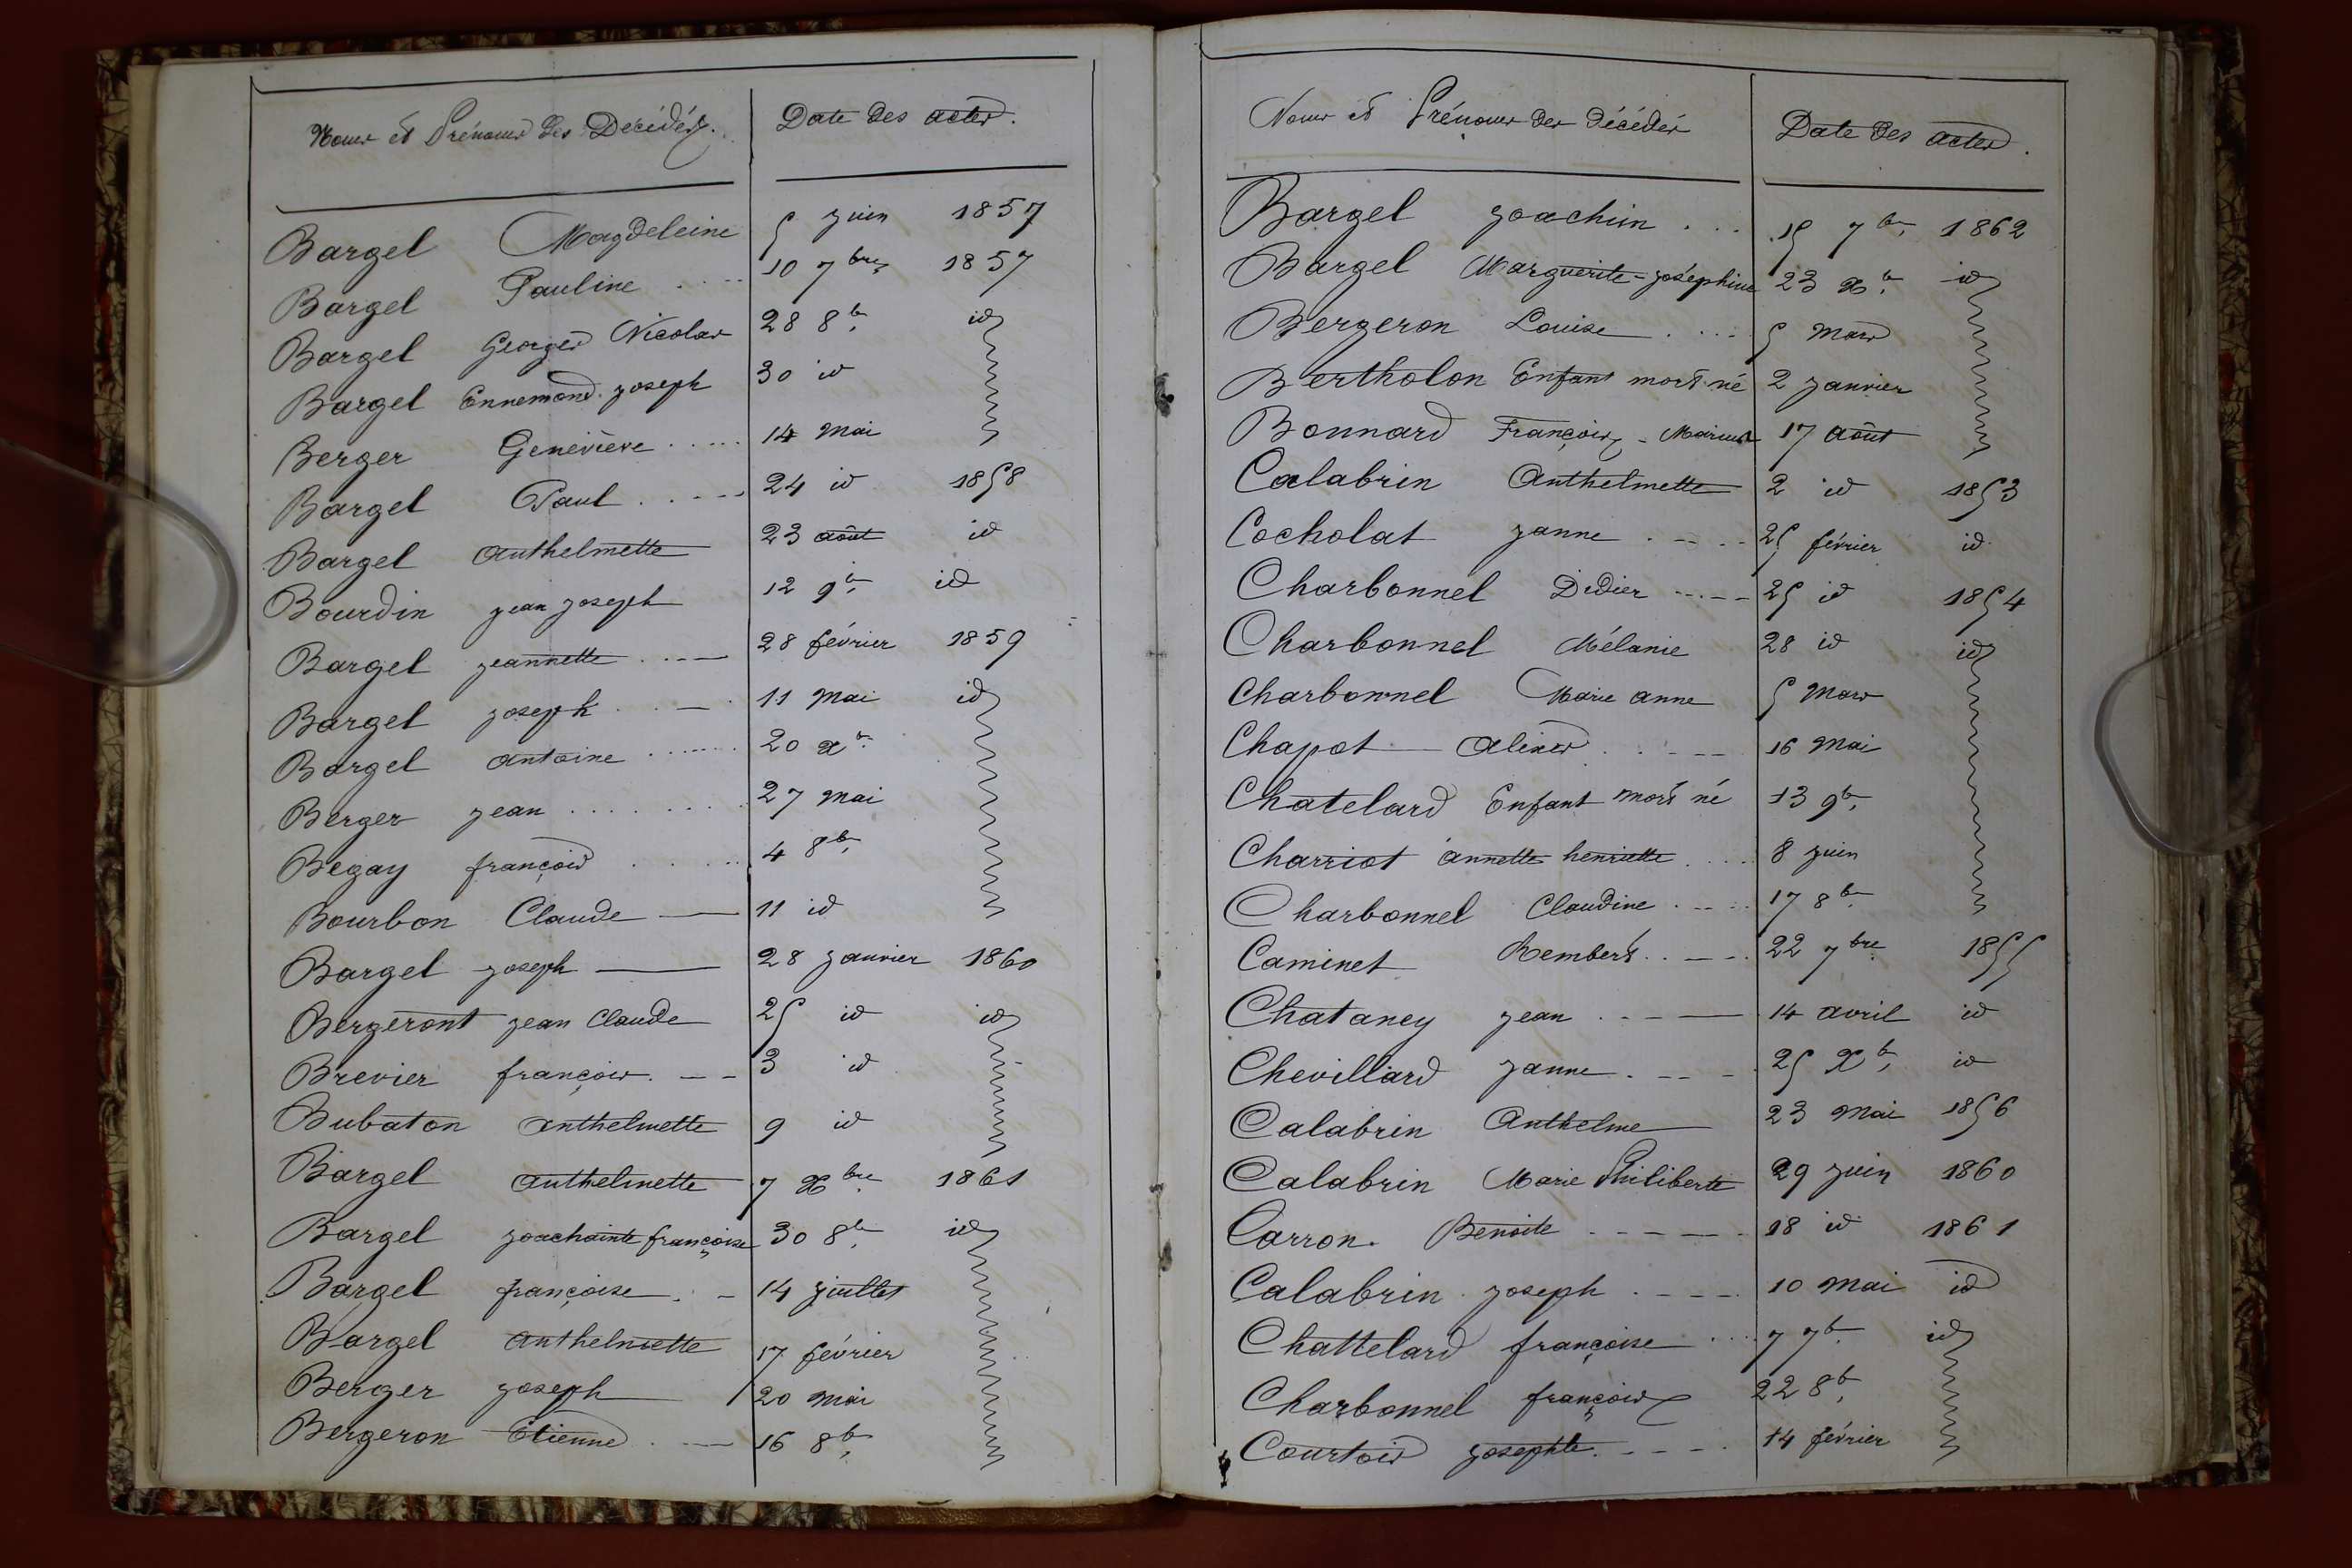 Noms et Prénoms des Décédés. Date des actes.
Bargel Magdeleine 5 juin 1857
Bargel Pauline .... 10 7bre 1857
Bargel Georges Nicolas 28 8b. id
Bargel Ennemond joseph 30 id
Berger Geneviève ..... 14 mai
Bargel Paul ..... 24 id 1858
Bargel anthelmette 23 août id
Bourdin jean joseph 12 9b. id
Bargel jeannette ... — 28 février 1859
Bargel joseph .. — . 11 mai id
Bargel antoine ...... 20 xb.
Berger jean ........ 27 mai
Begay françois ..... 4 8b.
Bourbon Claude — 11 id
Bargel joseph — 28 janvier 1860
Bergeront jean Claude 25 id id
Brevier françois. — — 3 id
Bubaton anthelmette 9 id
Bargel anthelmette 7 Xbre 1861
Bargel joachainte françoise 30 8b. id
Bargel françoise . — 14 juillet
Bargel anthelmette 17 février
Berger joseph — 20 mai
Bergeron Etienne . — 16 8b.
Noms et Prénoms des décédés Date des actes.
Bargel joachim ... 15 7b. 1862
Bargel Marguerite-joséphine 23 Xb. id
Bergeron Louise .... 5 mars
Bertholon Enfant mort né 2 janvier
Bonnard François - Marius 17 août
Calabrin Anthelmette 2 id 1853
Cocholat janne . — — . 25 février id
Charbonnel Didier ... — — 25 id 1854
Charbonnel Mélanie 28 id id
Charbonnel Marie anne 5 mars
Chapot — alixis . . — — 16 mai
Chatelard Enfant mort né 13 9b.
Charriot annette henriette .... 8 juin
Charbonnel Claudine .... 17 8b.
Caminet Rembert .. — . 22 7bre 1855
Chataney jean . — — 14 avril id
Chevillard janne . — — — 25 Xb. id
Calabrin Anthelme 23 mai 1856
Calabrin Marie Philiberte 29 juin 1860
Carron. Benoite - - - - - 18 id 1861
Calabrin joseph . - - - 10 mai id
Chattelard françoise .... 7 7b. id
Charbonnel françois 22 8b.
Courtois josephte. - - - . 14 février